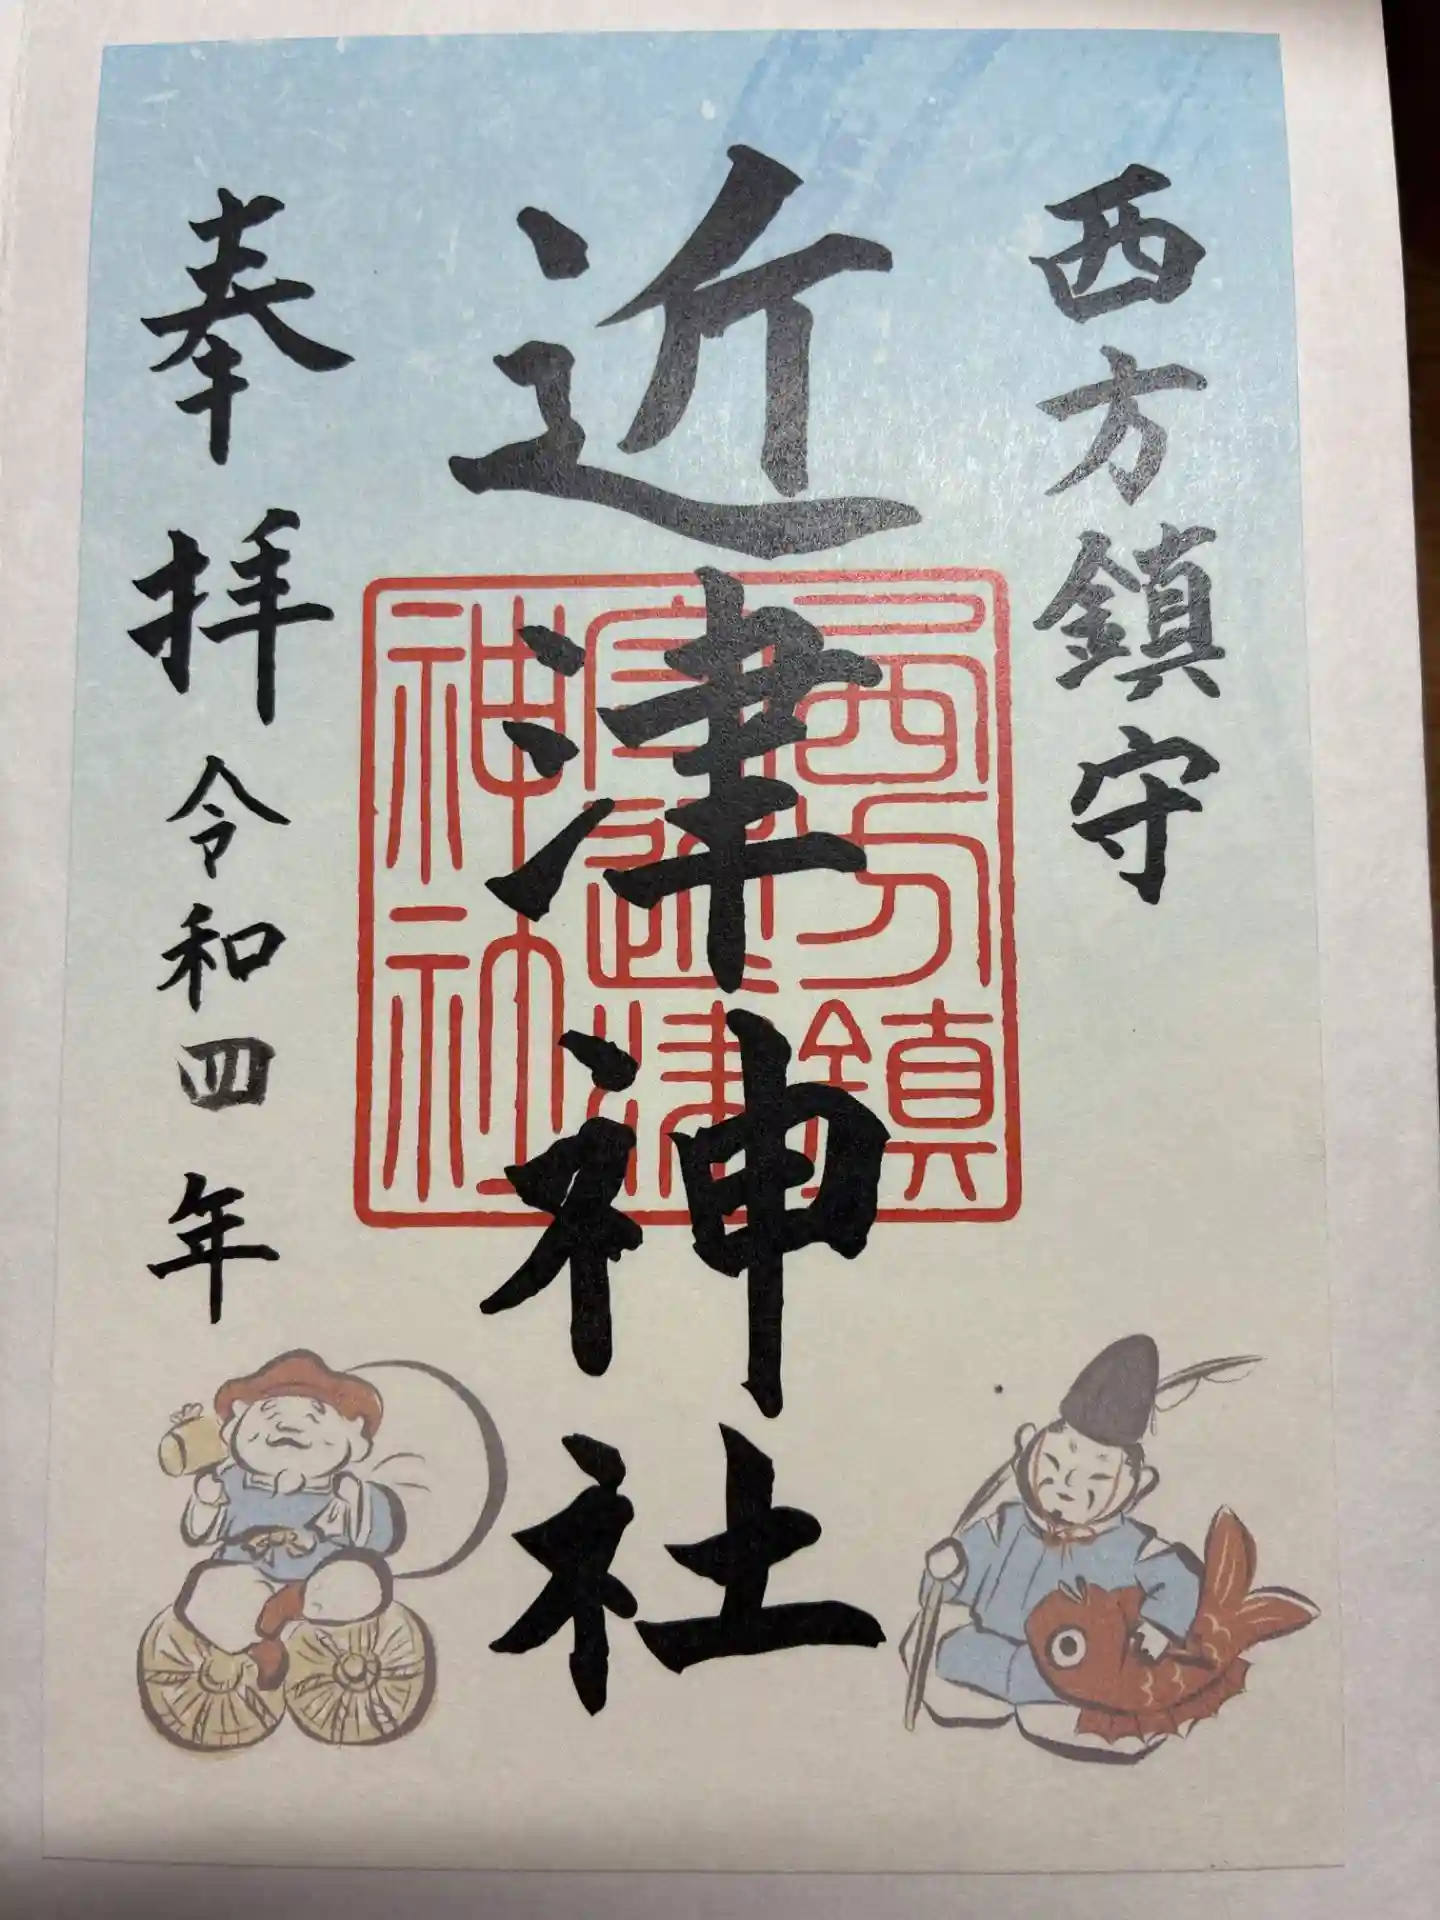 西方鎮守
近津神社
奉拝 令和四年
西方鎮
守近津
神社